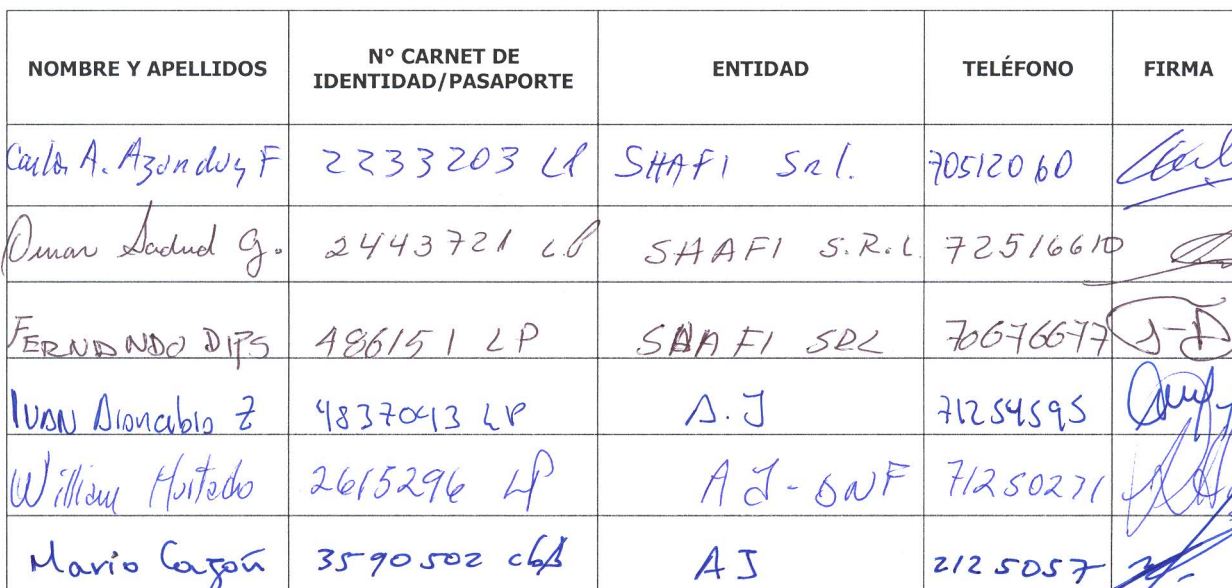 NOMBRE Y APELLIDOS N° CARNET DE IDENTIDAD/PASAPORTE ENTIDAD TELÉFONO FIRMA
Carlos A. Azurduy F 2233203 LP SHAFI Srl. 70512060
Omar Sadud G. 2443721 L.P SHAFI S.R.L 72516610
FERNANDO DIPS 486151 LP SHAFI SRL 70676677
IVAN Z 4837043 LP A.J 71254595
William Hurtado 2615296 LP AJ-DNF 71250271
Mario Cazón 3590502 cbA AJ 2125057